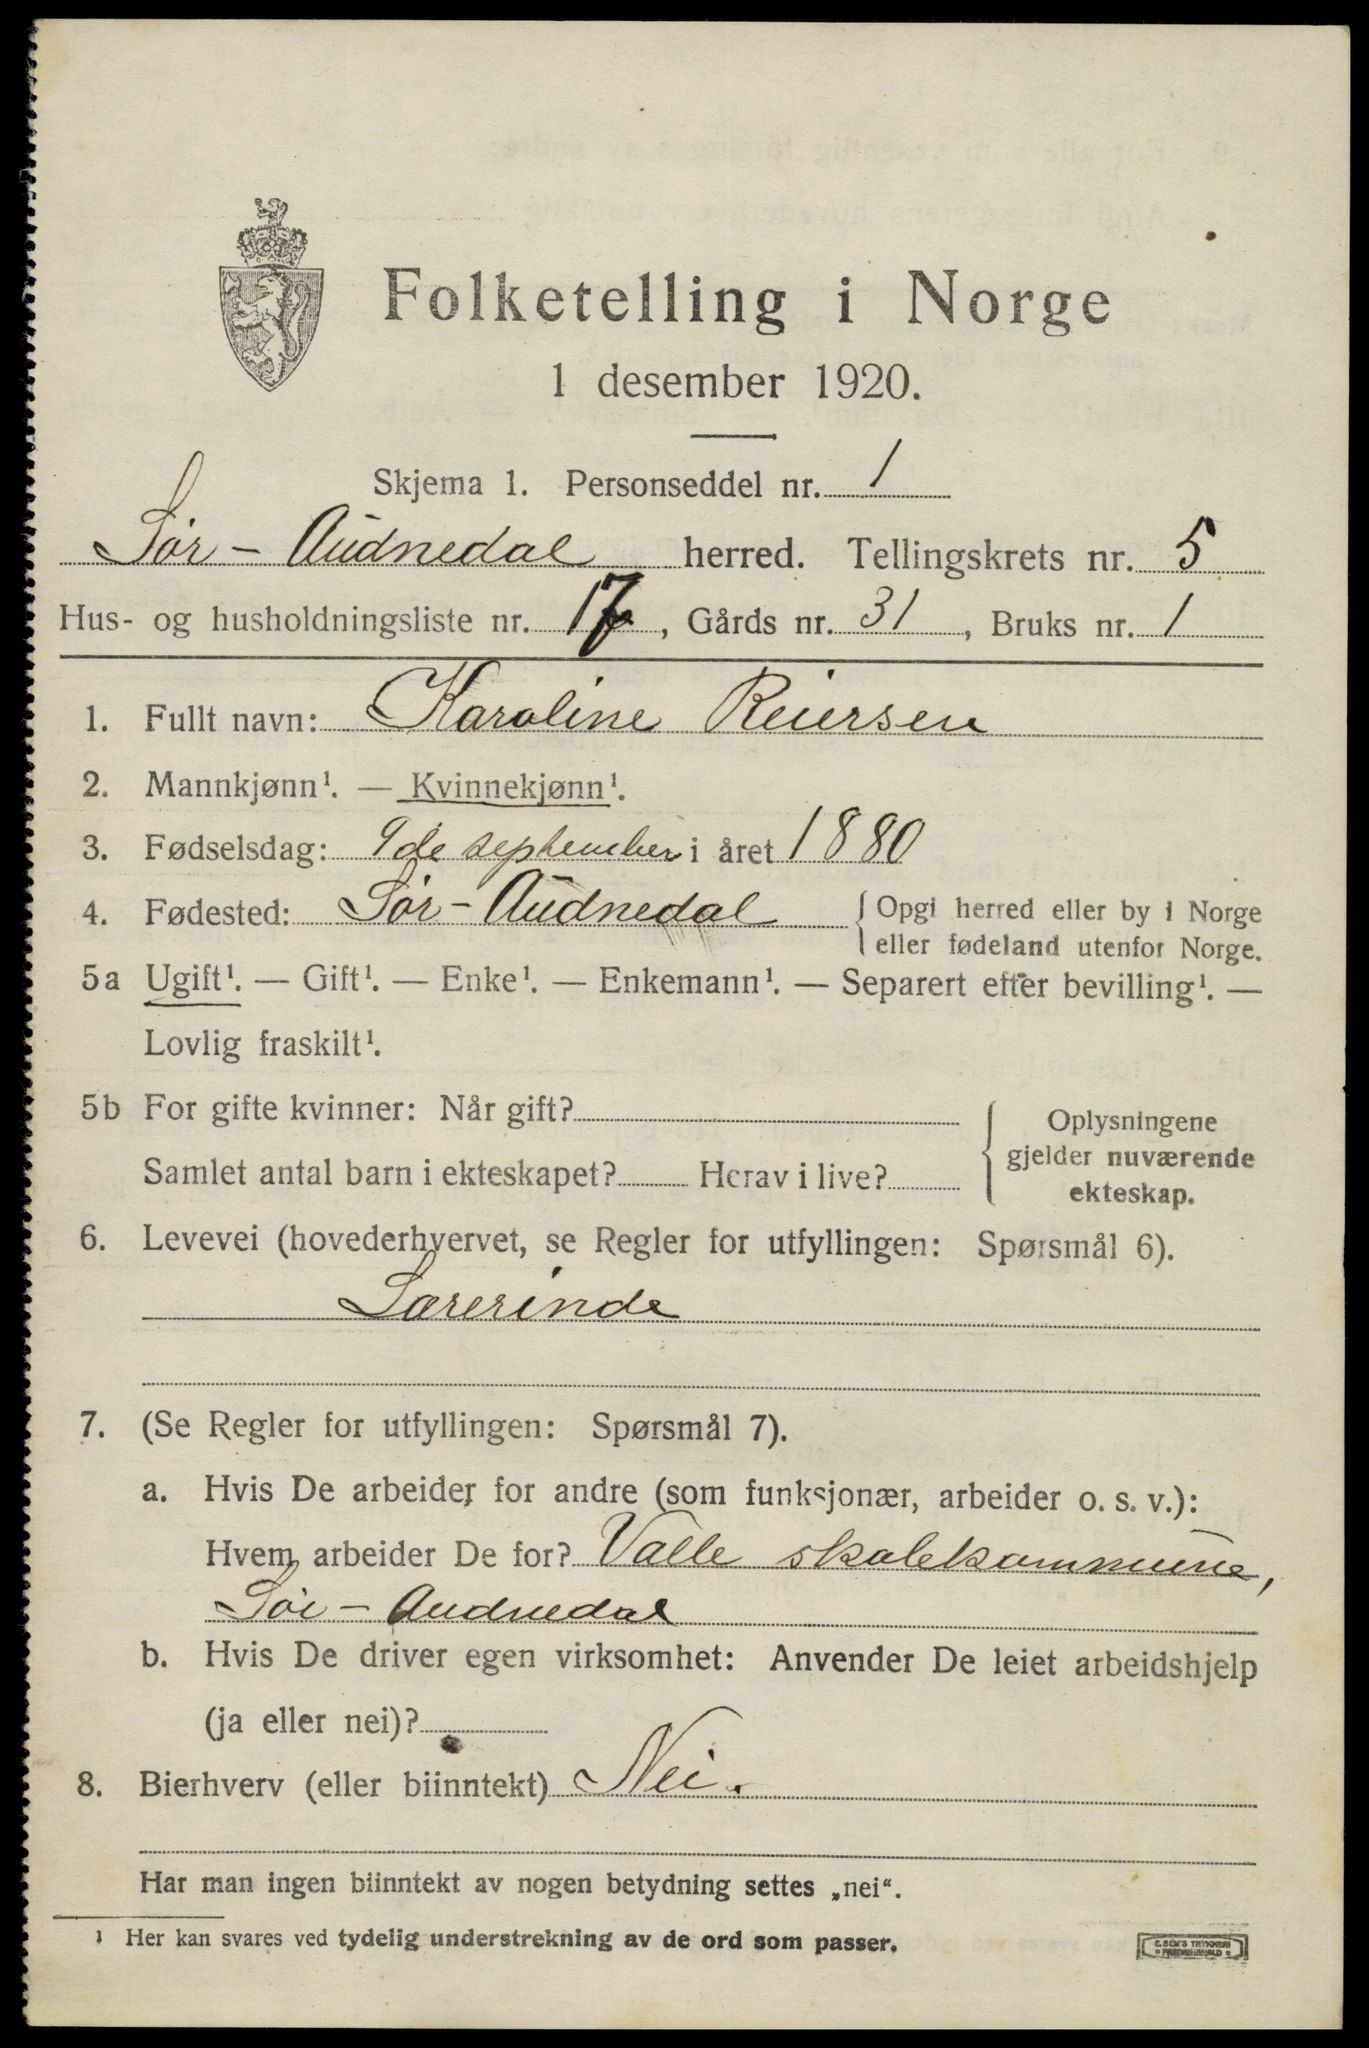 Folketelling i Norge
1 desember 1920.
Skjema 1. Personseddel nr. 1
Sør-Audnedal herred. Tellingskrets nr. 5
Hus- og husholdningsliste nr. 17, Gårds nr. 31, Bruks nr. 1
1. Fullt navn: Karoline Reiersen
2. Mannkjønn¹. — Kvinnekjønn¹.
3. Fødselsdag: 9de september i året 1880
4. Fødested: Sør-Audnedal { Opgi herred eller by i Norge
eller fødeland utenfor Norge.
5a Ugift¹. — Gift¹. — Enke¹. — Enkemann¹. — Separert efter bevilling¹. —
Lovlig fraskilt¹.
5b For gifte kvinner: Når gift?
Samlet antal barn i ekteskapet? Herav i live?
{ Oplysningene
gjelder nuværende
ekteskap.
6. Levevei (hovederhvervet, se Regler for utfyllingen: Spørsmål 6).
Lærerinde
7. (Se Regler for utfyllingen: Spørsmål 7).
a. Hvis De arbeider for andre (som funksjonær, arbeider o. s. v.):
Hvem arbeider De for? Valle skolekommune,
Sør-Audnedal
b. Hvis De driver egen virksomhet: Anvender De leiet arbeidshjelp
(ja eller nei)?
8. Bierhverv (eller biinntekt) Nei.
Har man ingen biinntekt av nogen betydning settes „nei“.
¹ Her kan svares ved tydelig understrekning av de ord som passer.
E. SEM'S TRYKKERI
FREDRIKSHALD